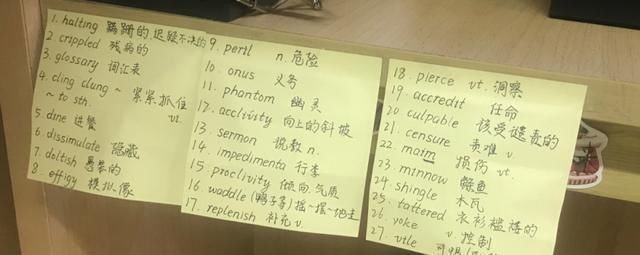 1. halting 蹒跚的,迟疑不决的
2. crippled 残病的
3. glossary 词汇表
4. cling clung ~ 紧紧抓住
~ to sth. vt.
5. dine 进餐
6. dissimulate 隐藏
7. doltish 愚笨的
8. effigy 模拟像
9. peril n. 危险
10. onus 义务
11. phantom 幽灵
12. acclivity 向上的斜坡
13. sermon 说教 n.
14. impedimenta 行李
15. proclivity 倾向,气质
16. waddle (鸭子等)摇~摇~地走
17. replenish 补充 v.
18. pierce vt. 洞察
19. accredit 任命
20. culpable 该受谴责的
21. censure 责难 v.
22. maim 损伤 vt.
23. minnow 鲦鱼
24. shingle 木瓦
25. tattered 衣衫褴褛的
26. yoke v. 控制
27.